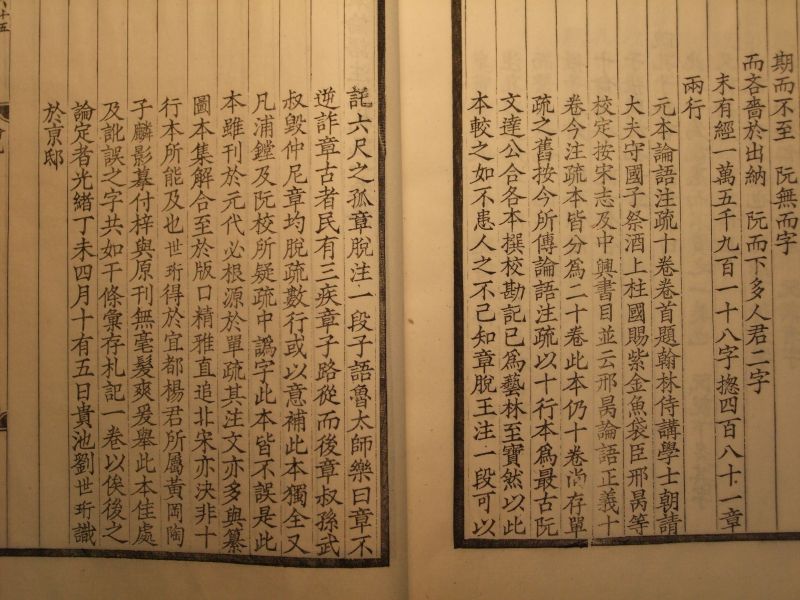 期而不至　阮無而字
而吝嗇於出納　阮而下多人君二字
末有經一萬五千九百一十八字揔四百八十一章
兩行
元本論語注疏十卷卷首題翰林侍講學士朝請
大夫守國子祭酒上柱國賜紫金魚袋臣邢昺等
校定按宋志及中興書目並云邢昺論語正義十
卷今注疏本皆分爲二十卷此本仍十卷尚存單
疏之舊按今所傳論語注疏以十行本爲最古阮
文達公合各本撰校勘記已爲藝林至寶然以此
本較之如不患人之不己知章脫王注一段可以
託六尺之孤章脫注一段子語魯太師樂曰章不
逆詐章古者民有三疾章子路從而後章叔孫武
叔毀仲尼章均脫疏數行或以意補此本獨全又
凡浦鏜及阮校所疑疏中譌字此本皆不誤是此
本雖刊於元代必根源於單疏其注文亦多與纂
圖本集解合至於版口精雅直追北宋亦決非十
行本所能及也世珩得於宜都楊君所屬黃岡陶
子麟影摹付梓與原刊無毫髮爽爰舉此本佳處
及訛誤之字共如干條彙存札記一卷以俟後之
論定者光緒丁未四月十有五日貴池劉世珩識
於京邸